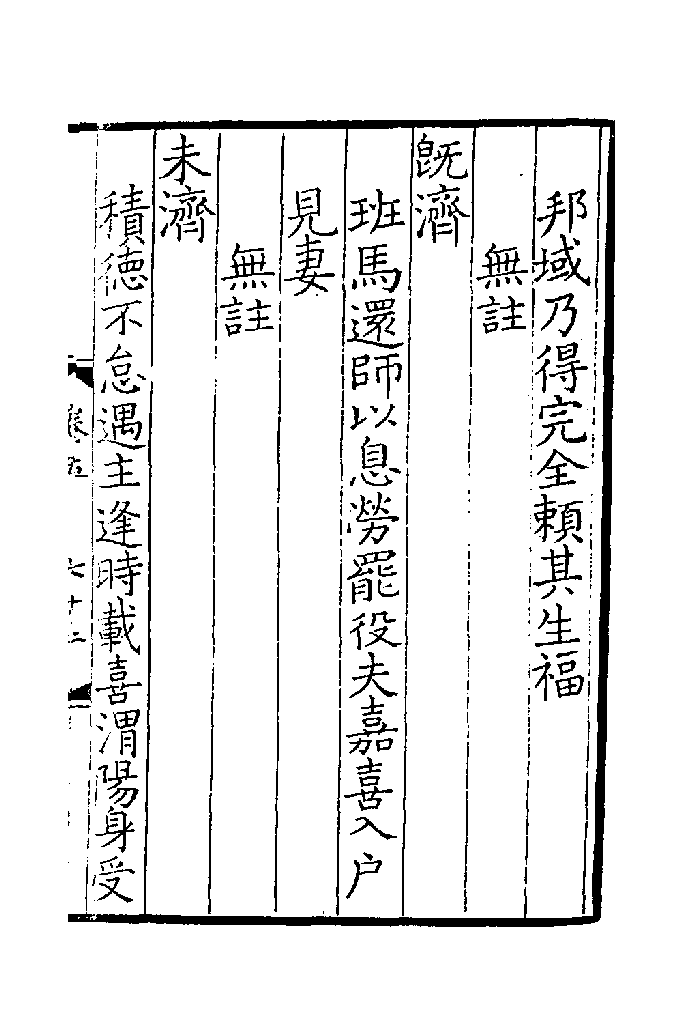 邦域乃得完全賴其生福
無註
旣濟
班馬還師以息勞罷役夫嘉喜入户
見妻
無註
未濟
積德不怠遇主逢時載喜渭陽身受
卷五
六十二